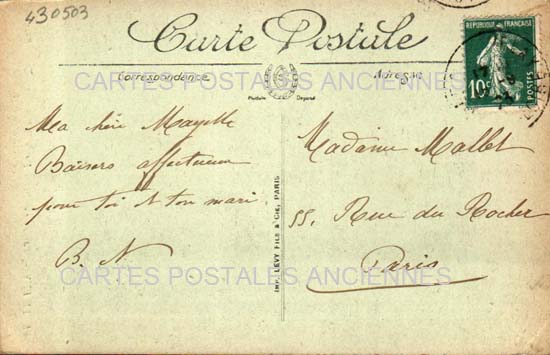 430503
Carte Postale
RÉPUBLIQUE FRANÇAISE
10c
POSTES
Correspondance
Adresse
CARTES POSTALES ANCIENNES
Ma chère Mayette
Baisers affectueux
pour toi et ton mari
B. N
Madame Mallet
55, Rue du Rocher
Paris
IMP. LEVY FILS & CIE, PARIS
CARTES POSTALES ANCIENNES